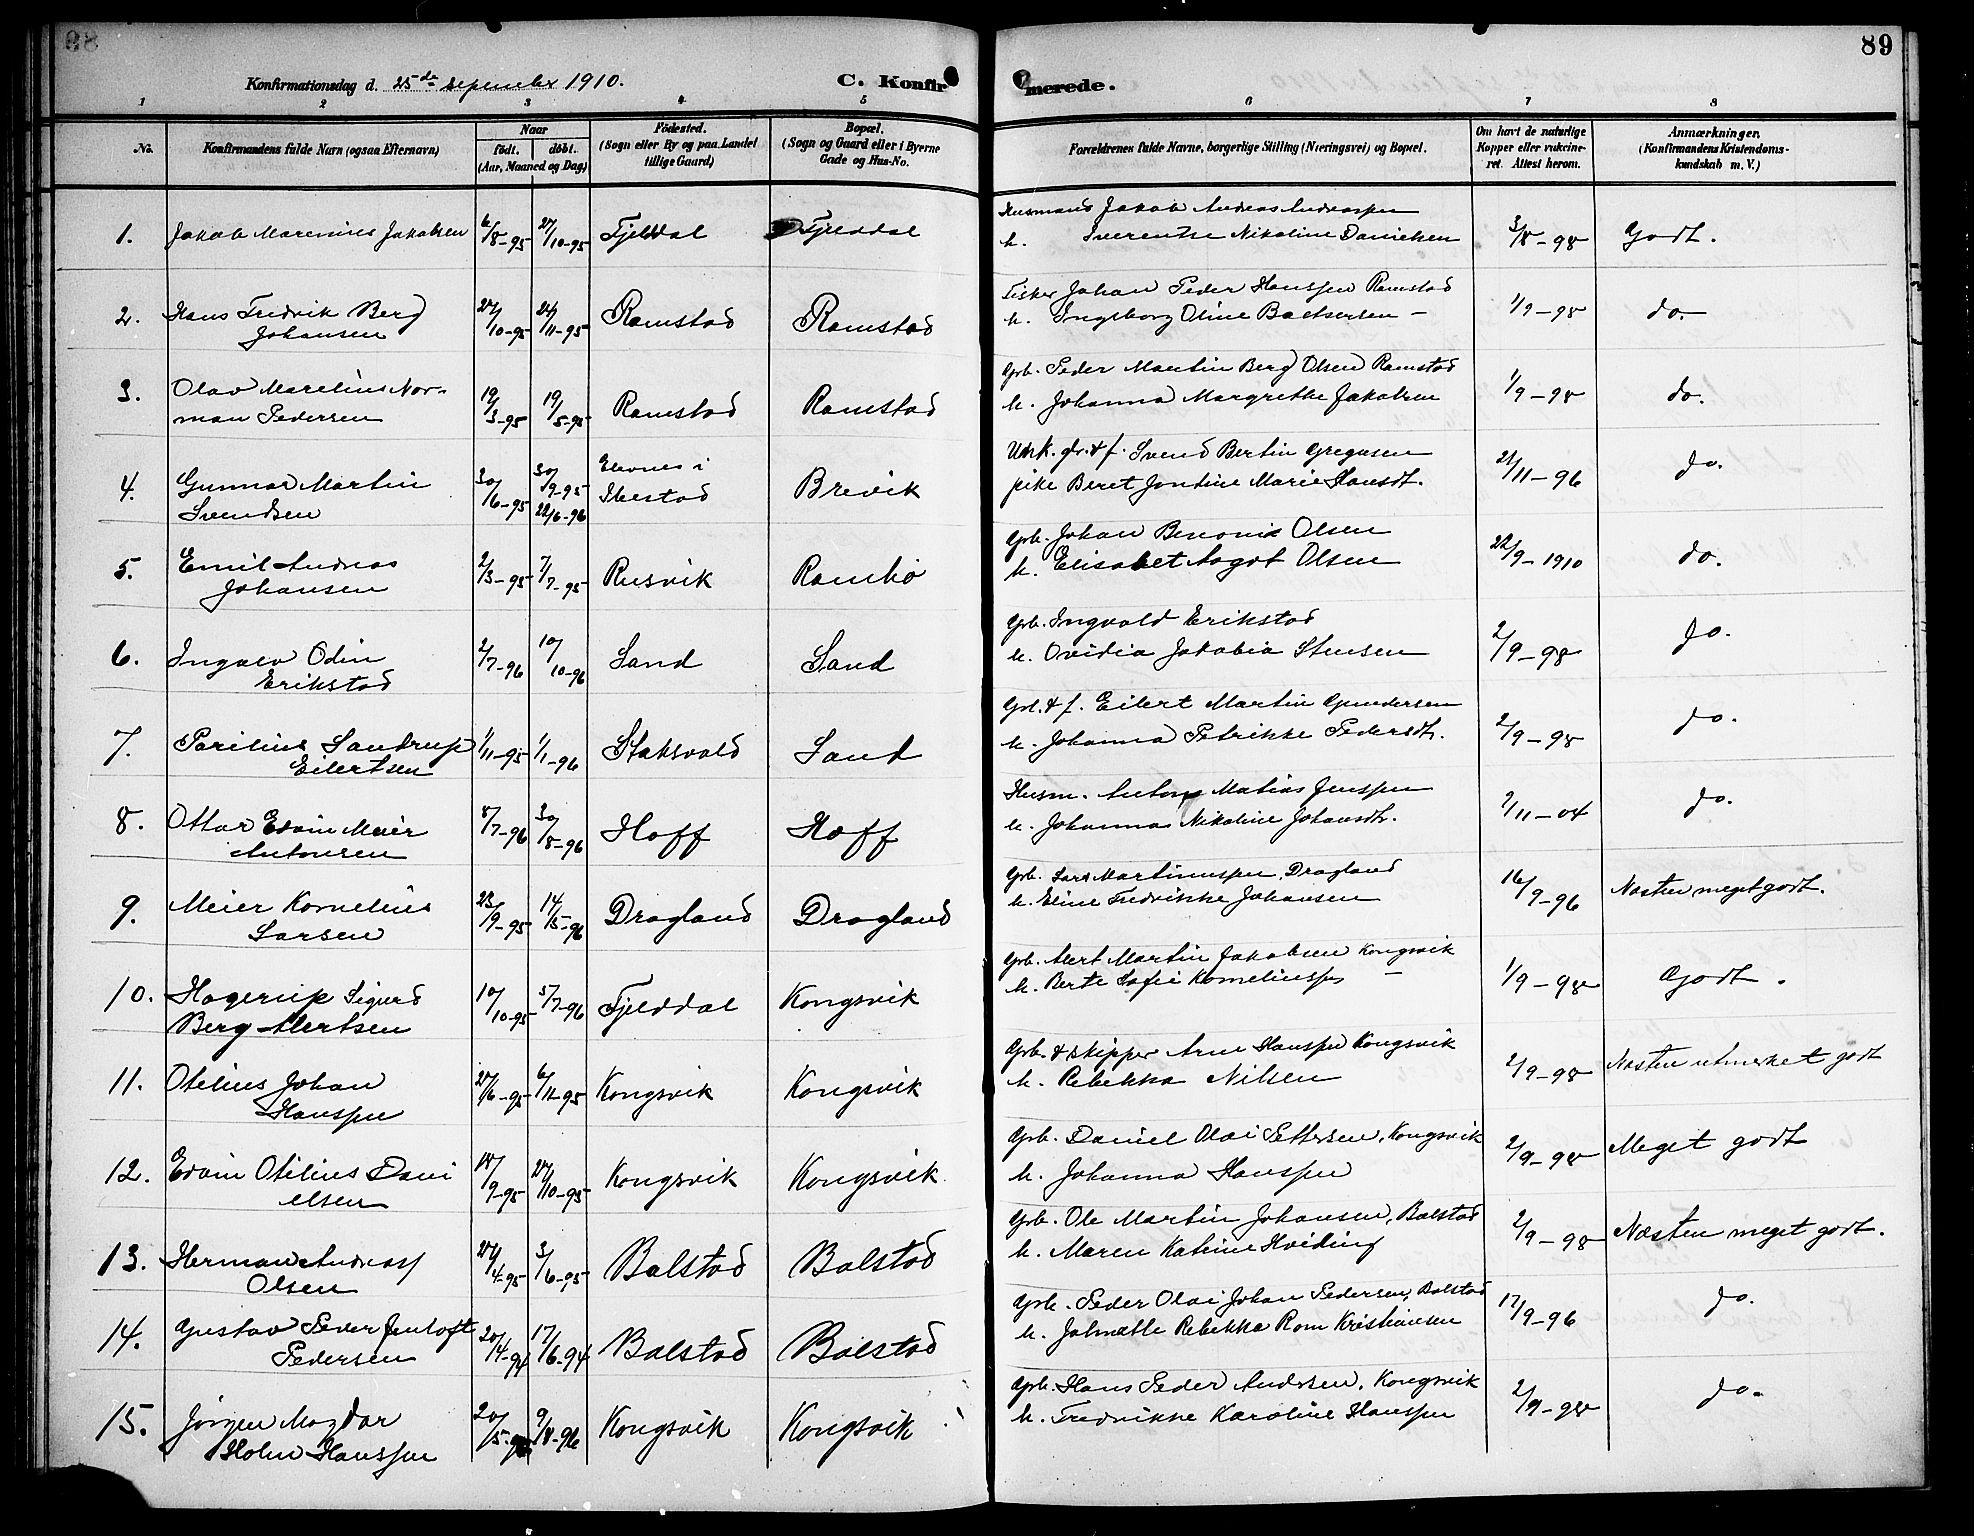 89
Konfirmationsdag d. 25de September 1910.
C. Konfirmerede.
1 2 3 4 5 6 7 8
No.
Konfirmandens fulde Navn (ogsaa Efternavn)
Naar
født. døbt.
(Aar, Maaned og Dag)
Fødested.
(Sogn eller By og paa Landet
tillige Gaard)
Bopæl.
(Sogn og Gaard eller i Byerne
Gade og Hus-No.
Forældrenes fulde Navne, borgerlige Stilling (Næringsvei) og Bopæl.
Om havt de naturlige
Kopper eller vakcine-
ret. Attest herom.
Anmærkninger.
(Konfirmandens Kristendoms-
kundskab m. V.)
1. Jakob Marenius Jakobsen 6/8-95 27/10-95 Fjelddal Fjelddal
Husmand Jakob Andreas Andreassen
h. Nikoline Danielsen 3/8-98 Godt.
2. Hans Fredrik Berg
Johansen 27/10-95 24/11-95 Ramstad Ramstad
Fisker Johan Peder Hanssen Ramstad
h. Ingeborg Oline Baltsersen - 1/9-98 do.
3. Olav Marelius Nor-
man Pedersen 19/3-95 19/5-95 Ramstad Ramstad
Grb. Peder Martin Berg Olsen Ramstad
h. Johanna Margrethe Jakobsen 1/9-98 do.
4. Gunnar Martin
Svendsen 30/6-95 30/9-95 22/6-96 Elvnes i
Ibestad Brevik
Svend Bertin Gregusen
pike Beret Jontine Marie Hansdt. 21/11-96 do.
5. Emil Andreas
Johansen 2/3-95 7/7-95 Rusvik Rambø
Grb. Johan Benonis Olsen
h. Elisabet Aagot Olsen 22/9-1910 do.
6. Ingolv Odin
Erikstad 2/7-96 10/10-96 Sand Sand
Grb. Ingvald Erikstad
h. Ovidia Jakobia Stensen 2/9-98 do.
7. Parilius Sandrup
Eilertsen 1/11-95 1/1-96 Staksvold Sand
Grb. & f. Eilert Martin Gundersen
h. Johanna Petrikke Pedersdt. 2/9-98 do.
8. Ottar Edvin Meier
Antonsen 8/7-96 30/8-96 Hoff Hoff
Husm. Anton Matias Jenssen
h. Johanna Nikoline Johansdt. 7/11-04 do.
9. Meier Kornelius
Larsen 23/9-95 14/5-96 Dragland Dragland
Grb. Lars Martinussen, Dragland
h. Eline Fredrikke Johansen 16/9-96 Næsten meget godt.
10. Hagerup Sigurd
Berg Alertsen 10/10-95 5/7-96 Fjelddal Kongsvik
Grb. Alert Martin Jakobsen Kongsvik
h. Berte Sofie Korneliussen - 1/9-98 Godt.
11. Otelius Johan
Hanssen 27/6-95 6/11-95 Kongsvik Kongsvik
Grb. & skipper Arne Hanssen Kongsvik
h. Rebekka Nilsen 2/9-98 Næsten utmerket godt
12. Edvin Otilius Dani
elsen 18/9-95 27/10-95 Kongsvik Kongsvik
Grb. Daniel Olai Pettersen, Kongsvik
h. Johanna Hanssen 2/9-98 Meget godt
13. Herman Andreas
Olsen 27/4-95 3/6-95 Balstad Balstad
Grb. Ole Martin Johansen, Balstad
h. Maren Katrine Hviding 2/9-98 Næsten meget godt.
14. Gustav Peder Jentoft
Pedersen 20/4-94 17/6-94 Balstad Balstad
Grb. Peder Olai Johan Pedersen, Balstad
h. Jalmette Rebekka Rom Kristiansen 17/9-96 do.
15. Jörgen Magdar
Holm Hanssen 20/5-96 9/8-96 Kongsvik Kongsvik
Grb. Hans Peder Andersen, Kongsvik
h. Fredrikke Karoline Hanssen 2/9-98 do.